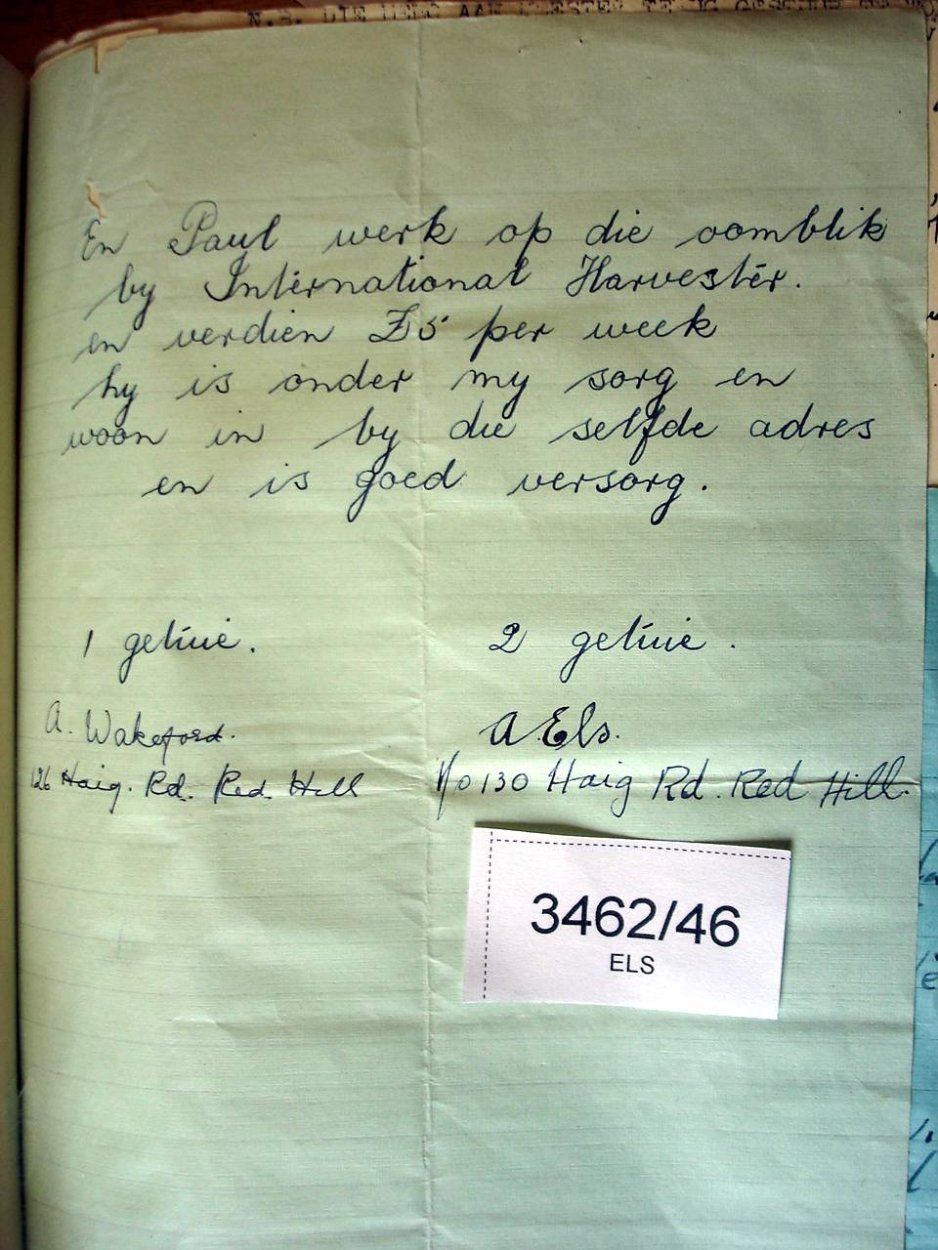 N.B. DIE
En Paul werk op die oomblik
by International Harvester.
en verdien £5 per week
hy is onder my sorg en
woon in by die selfde adres
en is goed versorg.
1 getuie. 2 getuie.
A. Wakeford. A. Els.
126 Haig. Rd. Red Hill 130 Haig Rd. Red Hill.
3462/46
ELS